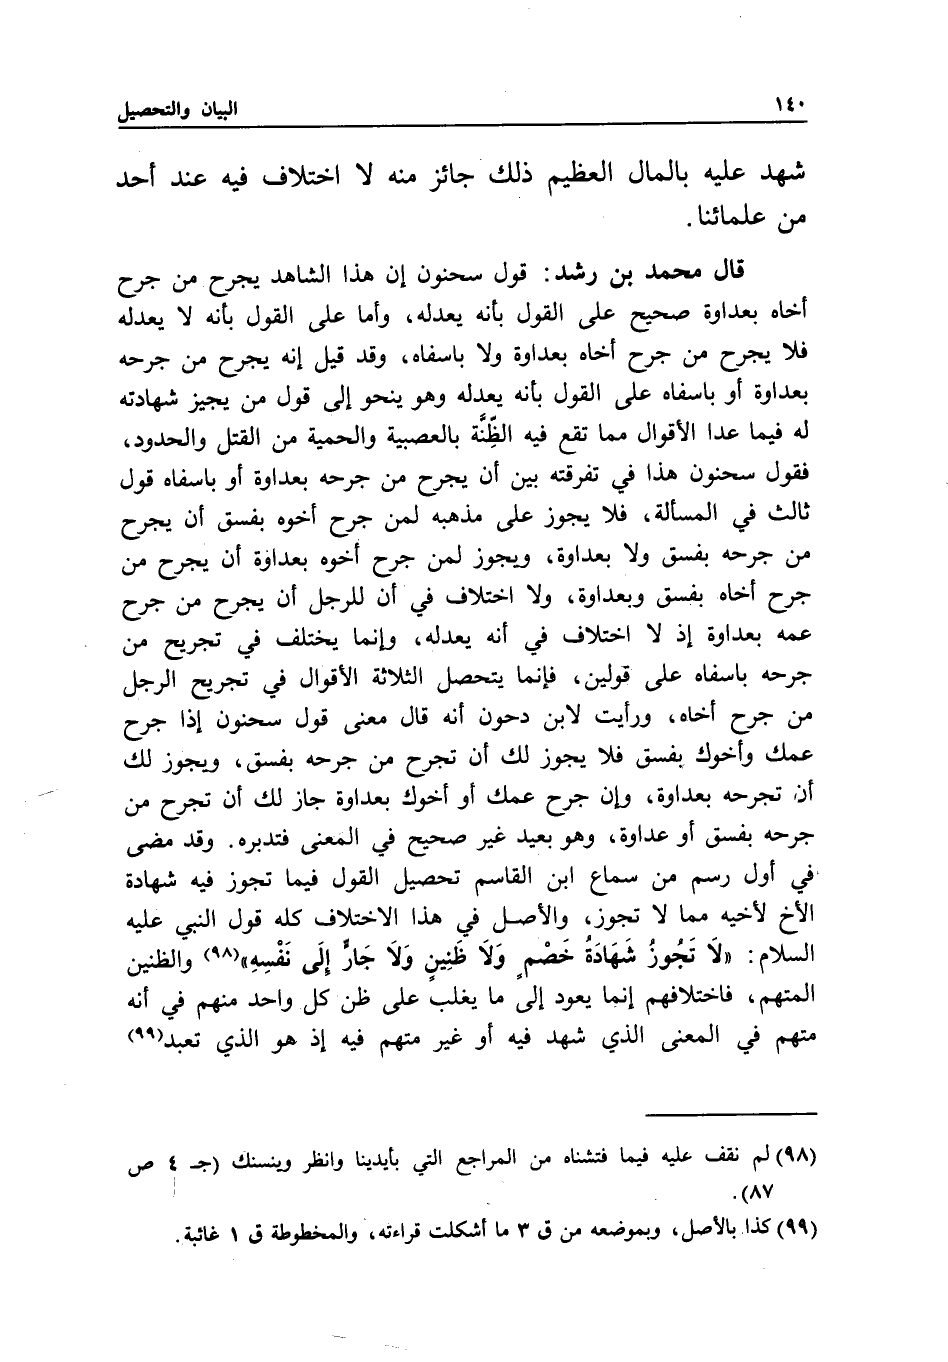 ١٤٠ البيان والتحصيل
شهد عليه بالمال العظيم ذلك جائز منه لا اختلاف فيه عند أحد
من علمائنا.
قال محمد بن رشد: قول سحنون إن هذا الشاهد يجرح من جرح
أخاه بعداوة صحيح على القول بأنه يعدله، وأما على القول بأنه لا يعدله
فلا يجرح من جرح أخاه بعداوة ولا باسفاه، وقد قيل إنه يجرح من جرحه
بعداوة أو باسفاه على القول بأنه يعدله وهو ينحو إلى قول من يجيز شهادته
له فيما عدا الأقوال مما تقع فيه الظِّنَّة بالعصبية والحمية من القتل والحدود،
فقول سحنون هذا في تفرقته بين أن يجرح من جرحه بعداوة أو باسفاه قول
ثالث في المسألة، فلا يجوز على مذهبه لمن جرح أخوه بفسق أن يجرح
من جرحه بفسق ولا بعداوة، ويجوز لمن جرح أخوه بعداوة أن يجرح من
جرح أخاه بفسق وبعداوة، ولا اختلاف في أن للرجل أن يجرح من جرح
عمه بعداوة إذ لا اختلاف في أنه يعدله، وإنما يختلف في تجريح من
جرحه باسفاه على قولين، فإنما يتحصل الثلاثة الأقوال في تجريح الرجل
من جرح أخاه، ورأيت لابن دحون أنه قال معنى قول سحنون إذا جرح
عمك وأخوك بفسق فلا يجوز لك أن تجرح من جرحه بفسق، ويجوز لك
أن تجرحه بعداوة، وإن جرح عمك أو أخوك بعداوة جاز لك أن تجرح من
جرحه بفسق أو عداوة، وهو بعيد غير صحيح في المعنى فتدبره. وقد مضى
في أول رسم من سماع ابن القاسم تحصيل القول فيما تجوز فيه شهادة
الأخ لأخيه مما لا تجوز، والأصل في هذا الاختلاف كله قول النبي عليه
السلام: «لَا تَجُوزُ شَهَادَةُ خَصْمٍ وَلَا ظَنِينٍ وَلَا جَارٍّ إِلَى نَفْسِهِ»(٩٨) والظنين
المتهم، فاختلافهم إنما يعود إلى ما يغلب على ظن كل واحد منهم في أنه
متهم في المعنى الذي شهد فيه أو غير متهم فيه إذ هو الذي تعبد(٩٩)
(٩٨) لم نقف عليه فيما فتشناه من المراجع التي بأيدينا وانظر وينسنك (جـ ٤ ص
٨٧).
(٩٩) كذا بالأصل، وبموضعه من ق ٣ ما أشكلت قراءته، والمخطوطة ق ١ غائبة.